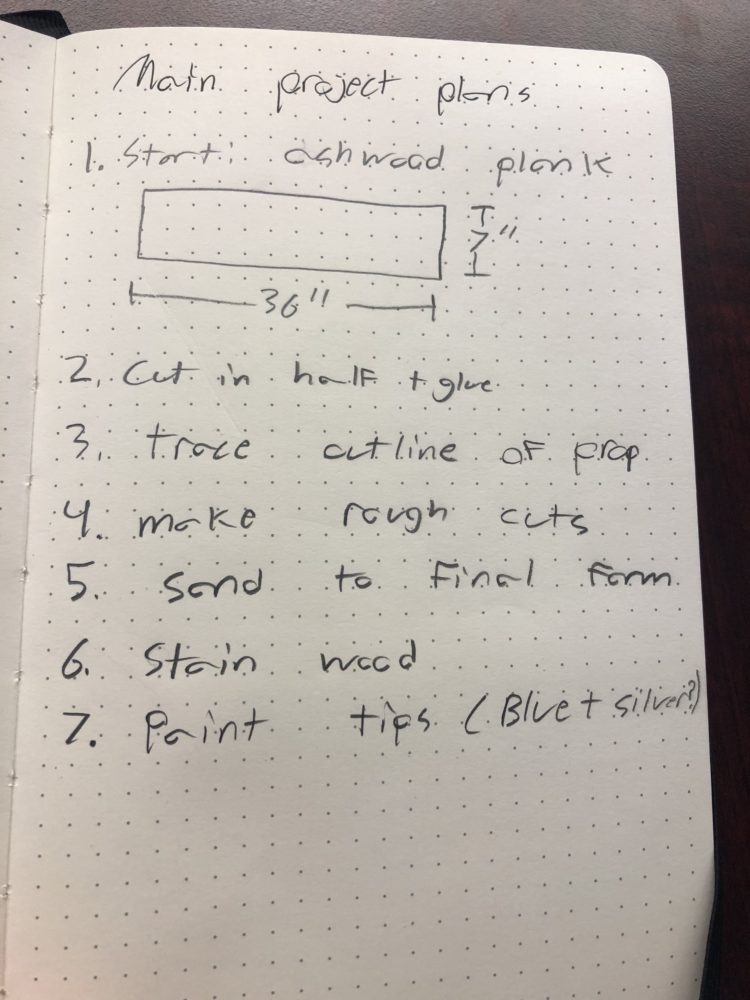 Main project plans
1. Start: ash wood plank
7"
36"
2. Cut in half + glue
3. trace outline of prop
4. make rough cuts
5. sand to final form
6. Stain wood
7. Paint tips (Blue + silver?)